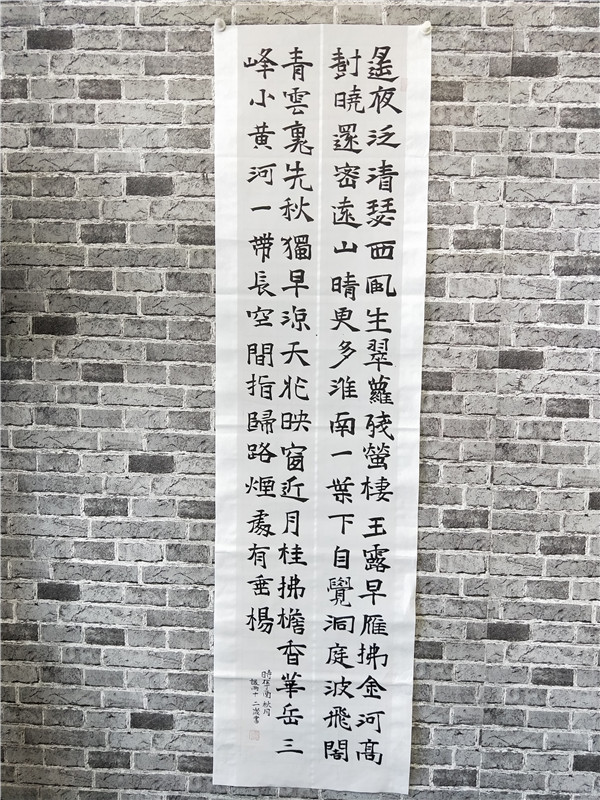 遥夜泛清瑟西風生翠蘿殘螢棲玉露早雁拂金河高
樹曉還密遠山晴更多淮南一葉下自覺洞庭波飛閣
青雲裏先秋獨早涼天花映窗近月桂拂檐香華岳三
峰小黄河一帶長空間指歸路煙處有垂楊
時秋月
十二歲書